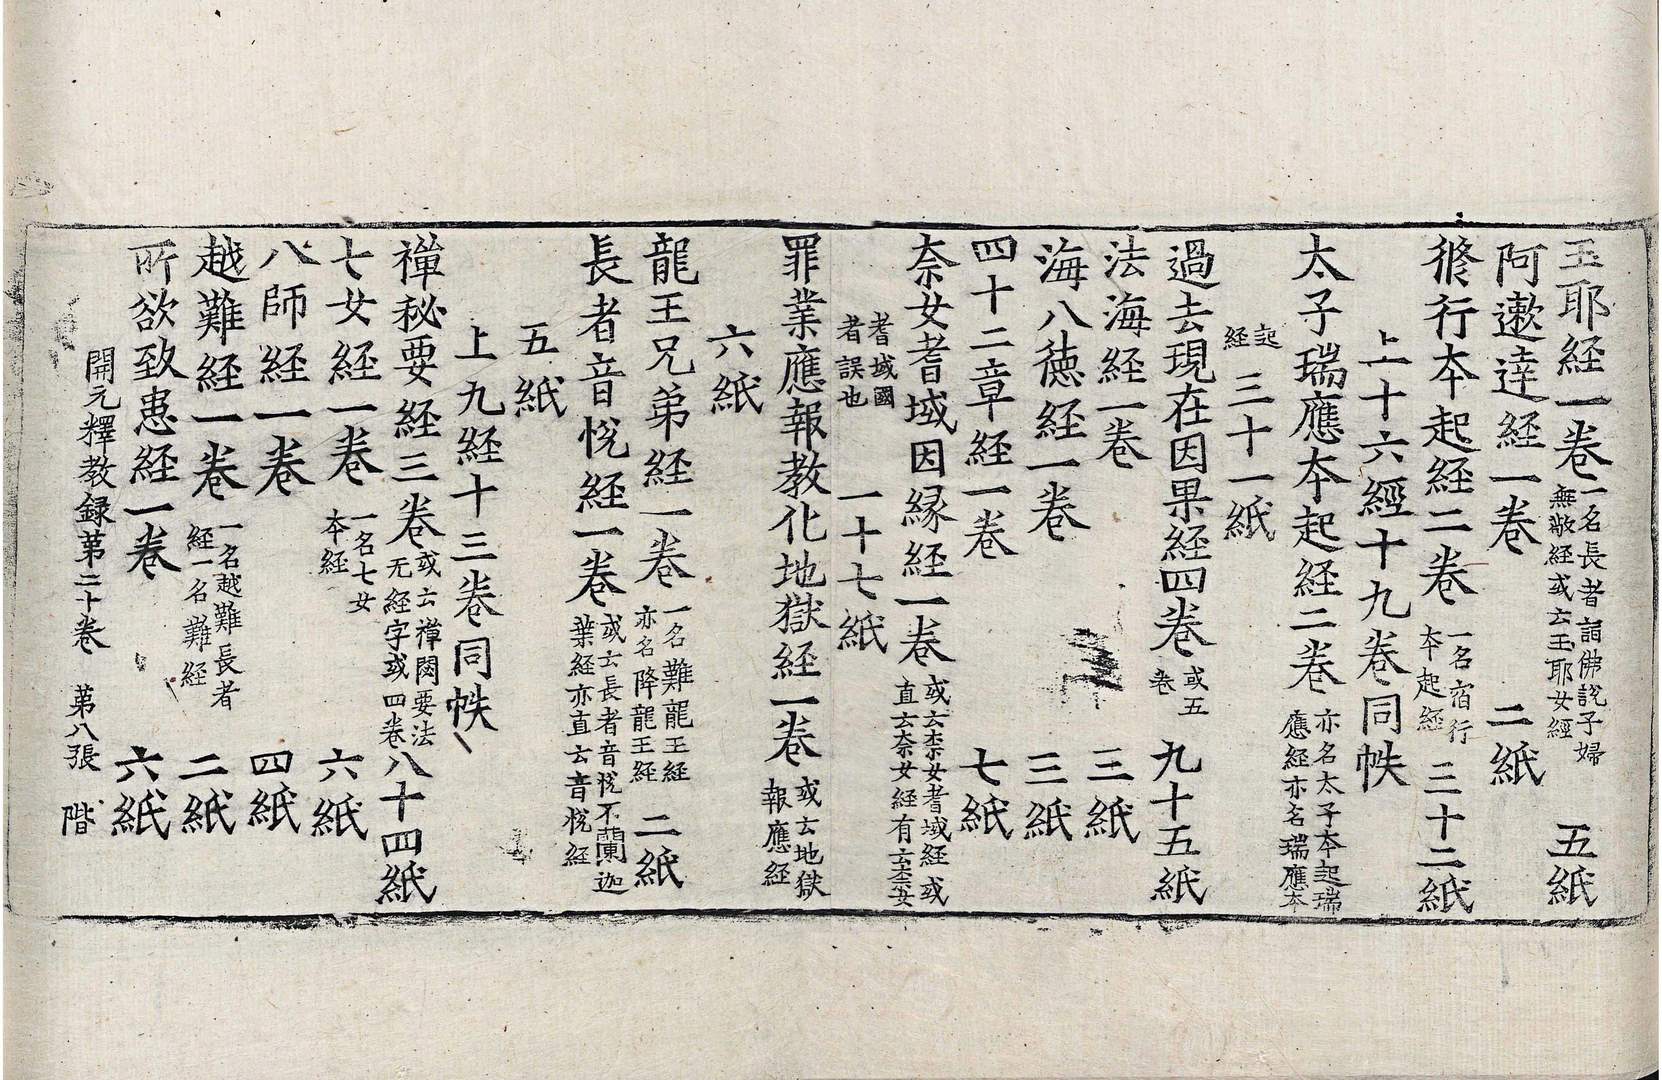 玉耶経一卷一名長者詣佛説子婦無敵經或云玉耶女經 五紙
阿遬達経一卷 二紙
修行本起経二卷一名宿行本起經 三十二紙
上十六經十九卷同帙
太子瑞應本起経二卷亦名太子本起瑞應経亦名瑞應本
起経 三十一紙
過去現在因果経四卷或五卷 九十五紙
法海経一卷 三紙
海八徳経一卷 三紙
四十二章経一卷 七紙
奈女耆域因縁経一卷或云柰女耆域経或直云奈女経有云柰女
耆域國者誤也 一十七紙
罪業應報教化地獄経一卷或云地獄報應経
六紙
龍王兄弟経一卷一名難龍王経亦名降龍王経 二紙
長者音悅経一卷或云長者音悅不蘭迦葉経亦直云音悅経
五紙
上九経十三卷同帙
禅秘要経三卷或云禅閟要法无経字或四卷 八十四紙
七女経一卷一名七女本経 六紙
八師経一卷 四紙
越難経一卷一名越難長者経一名難経 二紙
所欲致患経一卷 六紙
開元釋教録第二十卷 第八張 階